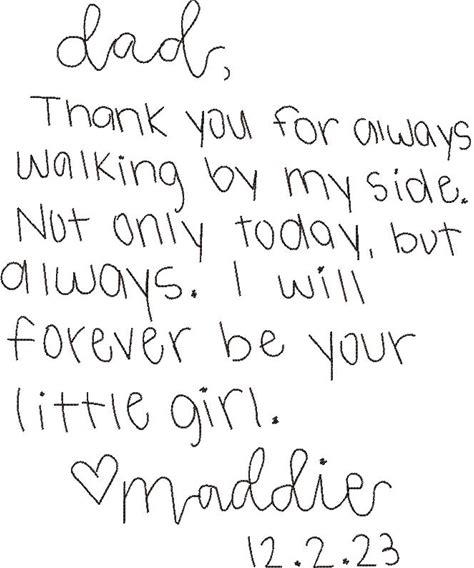 dad,
Thank you for always
walking by my side.
Not only today, but
always. I will
forever be your
little girl.
♡maddie
12.2.23